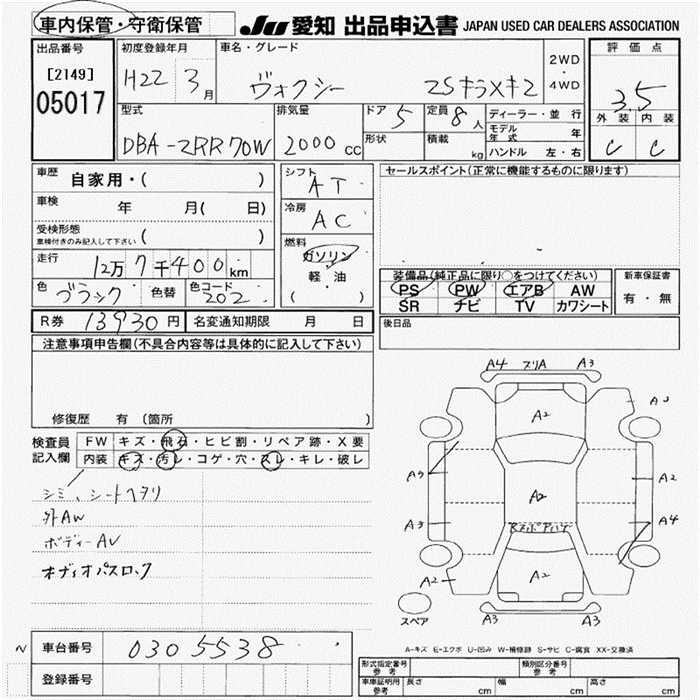 車内保管・守衛保管
JU 愛知 出品申込書 JAPAN USED CAR DEALERS ASSOCIATION
出品番号
[2149]
05017
初度登録年月
H22 3月
車名・グレード
ヴォクシー ZSキラメキ2
2WD
・
4WD
評価点
3.5
外装 内装
C C
型式
DBA-ZRR70W
排気量
2000 CC
ドア 5
形状
定員 8人
積載 kg
ディーラー・並行
モデル年式 年
ハンドル 左・右
車歴 自家用・( )
車検 年 月( 日)
受検形態
車検付きのみ記入して下さい ( )
走行 12万7千400km
色 ブラック 色替 色コード 202
シフト
AT
冷房
AC
燃料
ガソリン
軽・油
( )
セールスポイント(正常に機能するものに限ります)
装備品(純正品に限り○をつけてください)
PS PW エアB AW
SR ナビ TV カワシート
新車保証書
有・無
R券 13930円 名変通知期限 月 日
後日品
注意事項申告欄(不具合内容等は具体的に記入して下さい)
修復歴 有 (箇所 )
検査員記入欄
FW キズ・飛石・ヒビ割・リペア跡・X要
内装 キズ・汚レ・コゲ・穴・スレ・キレ・破レ
シミ、シートヘタリ
外AW
ボディーAV
オーディオパスロック
A4 スリA A3
A2
A9
A2
A2
A3
A4
A2
A2
A3 A3
スペア
A-キズ E-エクボ U-凹み W-補修跡 S-サビ C-腐食 XX-交換済
N 車台番号 0305538
登録番号
形式指定番号 参考
類別区分番号 参考
車庫証明用 参考 長さ cm 幅 cm 高さ cm